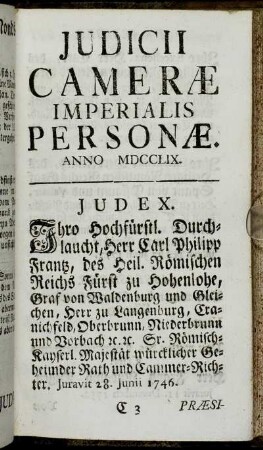 JUDICII
CAMERÆ
IMPERIALIS
PERSONÆ.
ANNO MDCCLIX.
JUDEX.
Ihro Hochfürstl. Durch-
laucht, Herr Carl Philipp
Frantz, des Heil. Römischen
Reichs Fürst zu Hohenlohe,
Graf von Waldenburg und Glei-
chen, Herr zu Langenburg, Cra-
nichfeld, Oberbrunn, Niederbrunn
und Vorbach ꝛc. ꝛc. Sr. Römisch-
Kayserl. Majestät würcklicher Ge-
heimder Rath und Cammer-Rich-
ter. Juravit 28. Junii 1746.
C 3 PRÆSI-